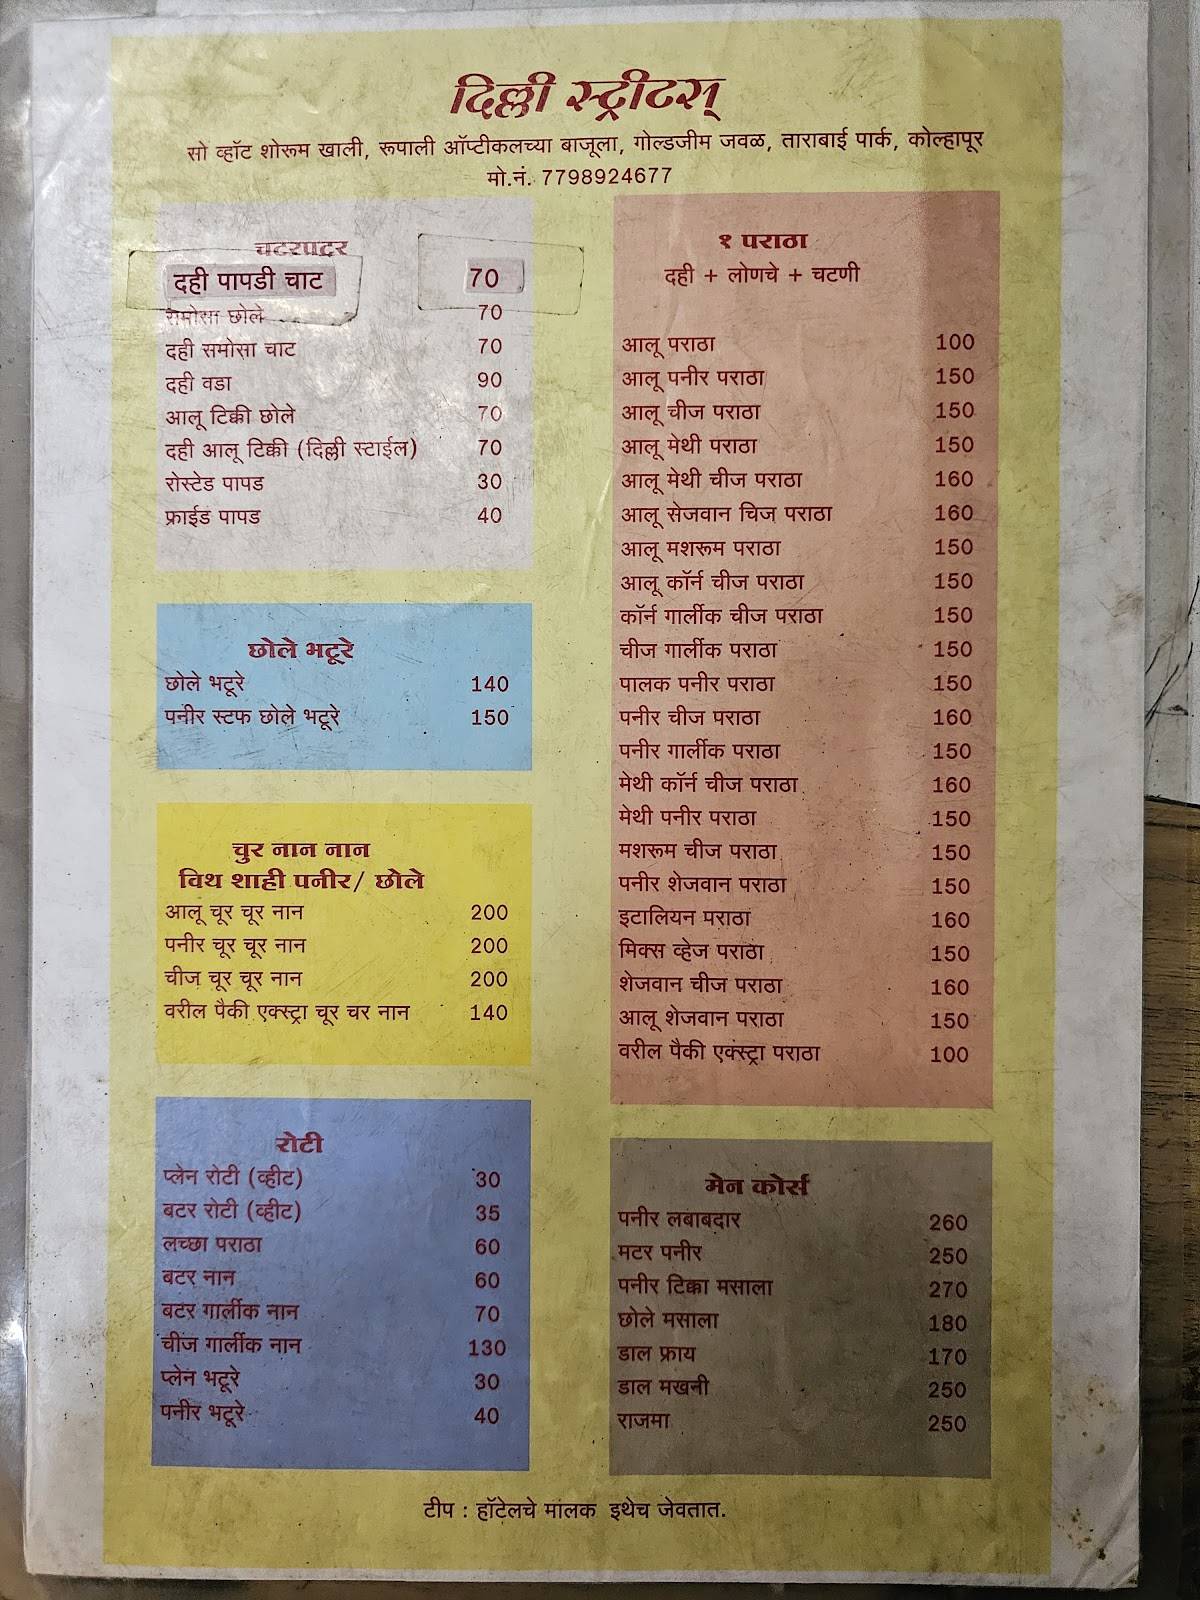 दिल्ली स्ट्रीटस्
सो व्हॉट शोरूम खाली, रूपाली ऑप्टीकलच्या बाजूला, गोल्डजीम जवळ, ताराबाई पार्क, कोल्हापूर
मो.नं. 7798924677
चटरपटर
दही पापडी चाट 70
समोसा छोले 70
दही समोसा चाट 70
दही वडा 90
आलू टिक्की छोले 70
दही आलू टिक्की (दिल्ली स्टाईल) 70
रोस्टेड पापड 30
फ्राईड पापड 40
छोले भटूरे
छोले भटूरे 140
पनीर स्टफ छोले भटूरे 150
चुर नान नान
विथ शाही पनीर/ छोले
आलू चूर चूर नान 200
पनीर चूर चूर नान 200
चीज चूर चूर नान 200
वरील पैकी एक्स्ट्रा चूर चर नान 140
रोटी
प्लेन रोटी (व्हीट) 30
बटर रोटी (व्हीट) 35
लच्छा पराठा 60
बटर नान 60
बटर गार्लीक नान 70
चीज गार्लीक नान 130
प्लेन भटूरे 30
पनीर भटूरे 40
१ पराठा
दही + लोणचे + चटणी
आलू पराठा 100
आलू पनीर पराठा 150
आलू चीज पराठा 150
आलू मेथी पराठा 150
आलू मेथी चीज पराठा 160
आलू सेजवान चिज पराठा 160
आलू मशरूम पराठा 150
आलू कॉर्न चीज पराठा 150
कॉर्न गार्लीक चीज पराठा 150
चीज गार्लीक पराठा 150
पालक पनीर पराठा 150
पनीर चीज पराठा 160
पनीर गार्लीक पराठा 150
मेथी कॉर्न चीज पराठा 160
मेथी पनीर पराठा 150
मशरूम चीज पराठा 150
पनीर शेजवान पराठा 150
इटालियन पराठा 160
मिक्स व्हेज पराठा 150
शेजवान चीज पराठा 160
आलू शेजवान पराठा 150
वरील पैकी एक्स्ट्रा पराठा 100
मेन कोर्स
पनीर लबाबदार 260
मटर पनीर 250
पनीर टिक्का मसाला 270
छोले मसाला 180
डाल फ्राय 170
डाल मखनी 250
राजमा 250
टीप : हॉटेलचे मालक इथेच जेवतात.